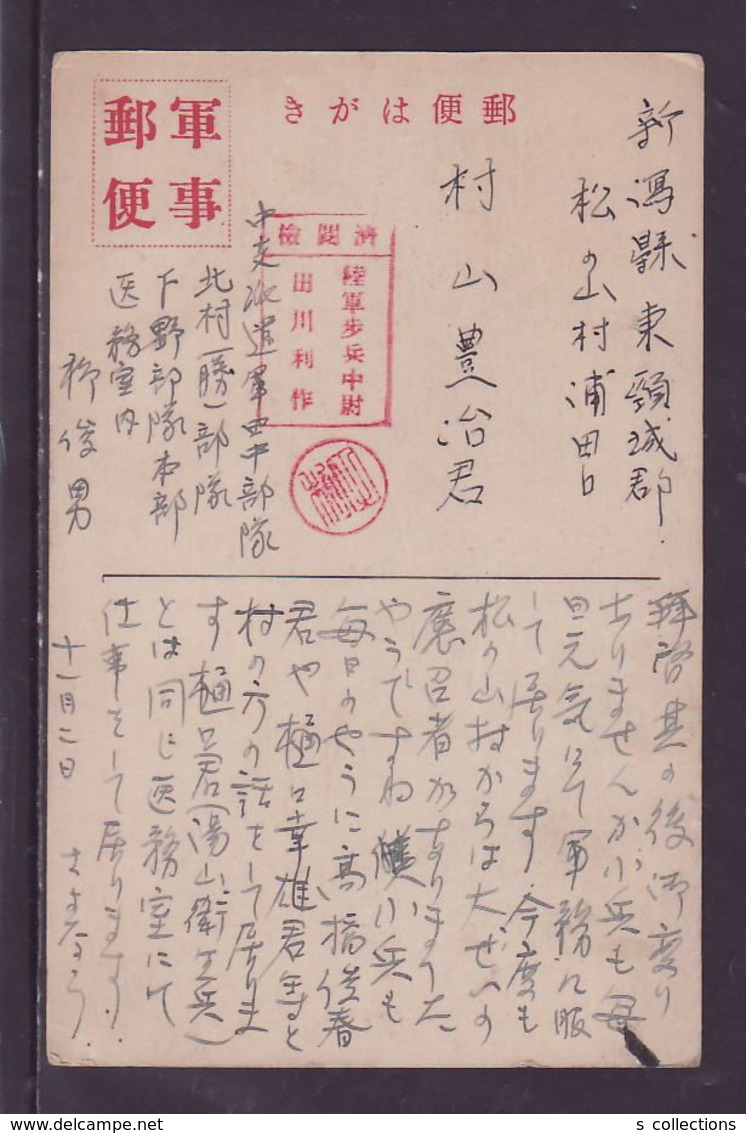 郵便はがき
軍事
郵便
新潟縣東頸城郡
松の山村浦田口
村山豊治君
檢閲濟
陸軍歩兵中尉
田川利作
中支派遣軍田中部隊
北村(勝)部隊
下野部隊本部
医務室内
柳俊男
拝啓其の後御変り
ありませんか小兵も毎
日元気にて軍務に服
して居ります今度も
松の山村からは大ぜいの
應召者がありました
やうですね 小兵も
毎日のやうに高橋俊春
君や樋口幸雄君等と
村の方の話をして居りま
す樋口君(湯山衛生兵)
とは同じ医務室にて
仕事をして居ります.
十一月二日 さよなら
s collections